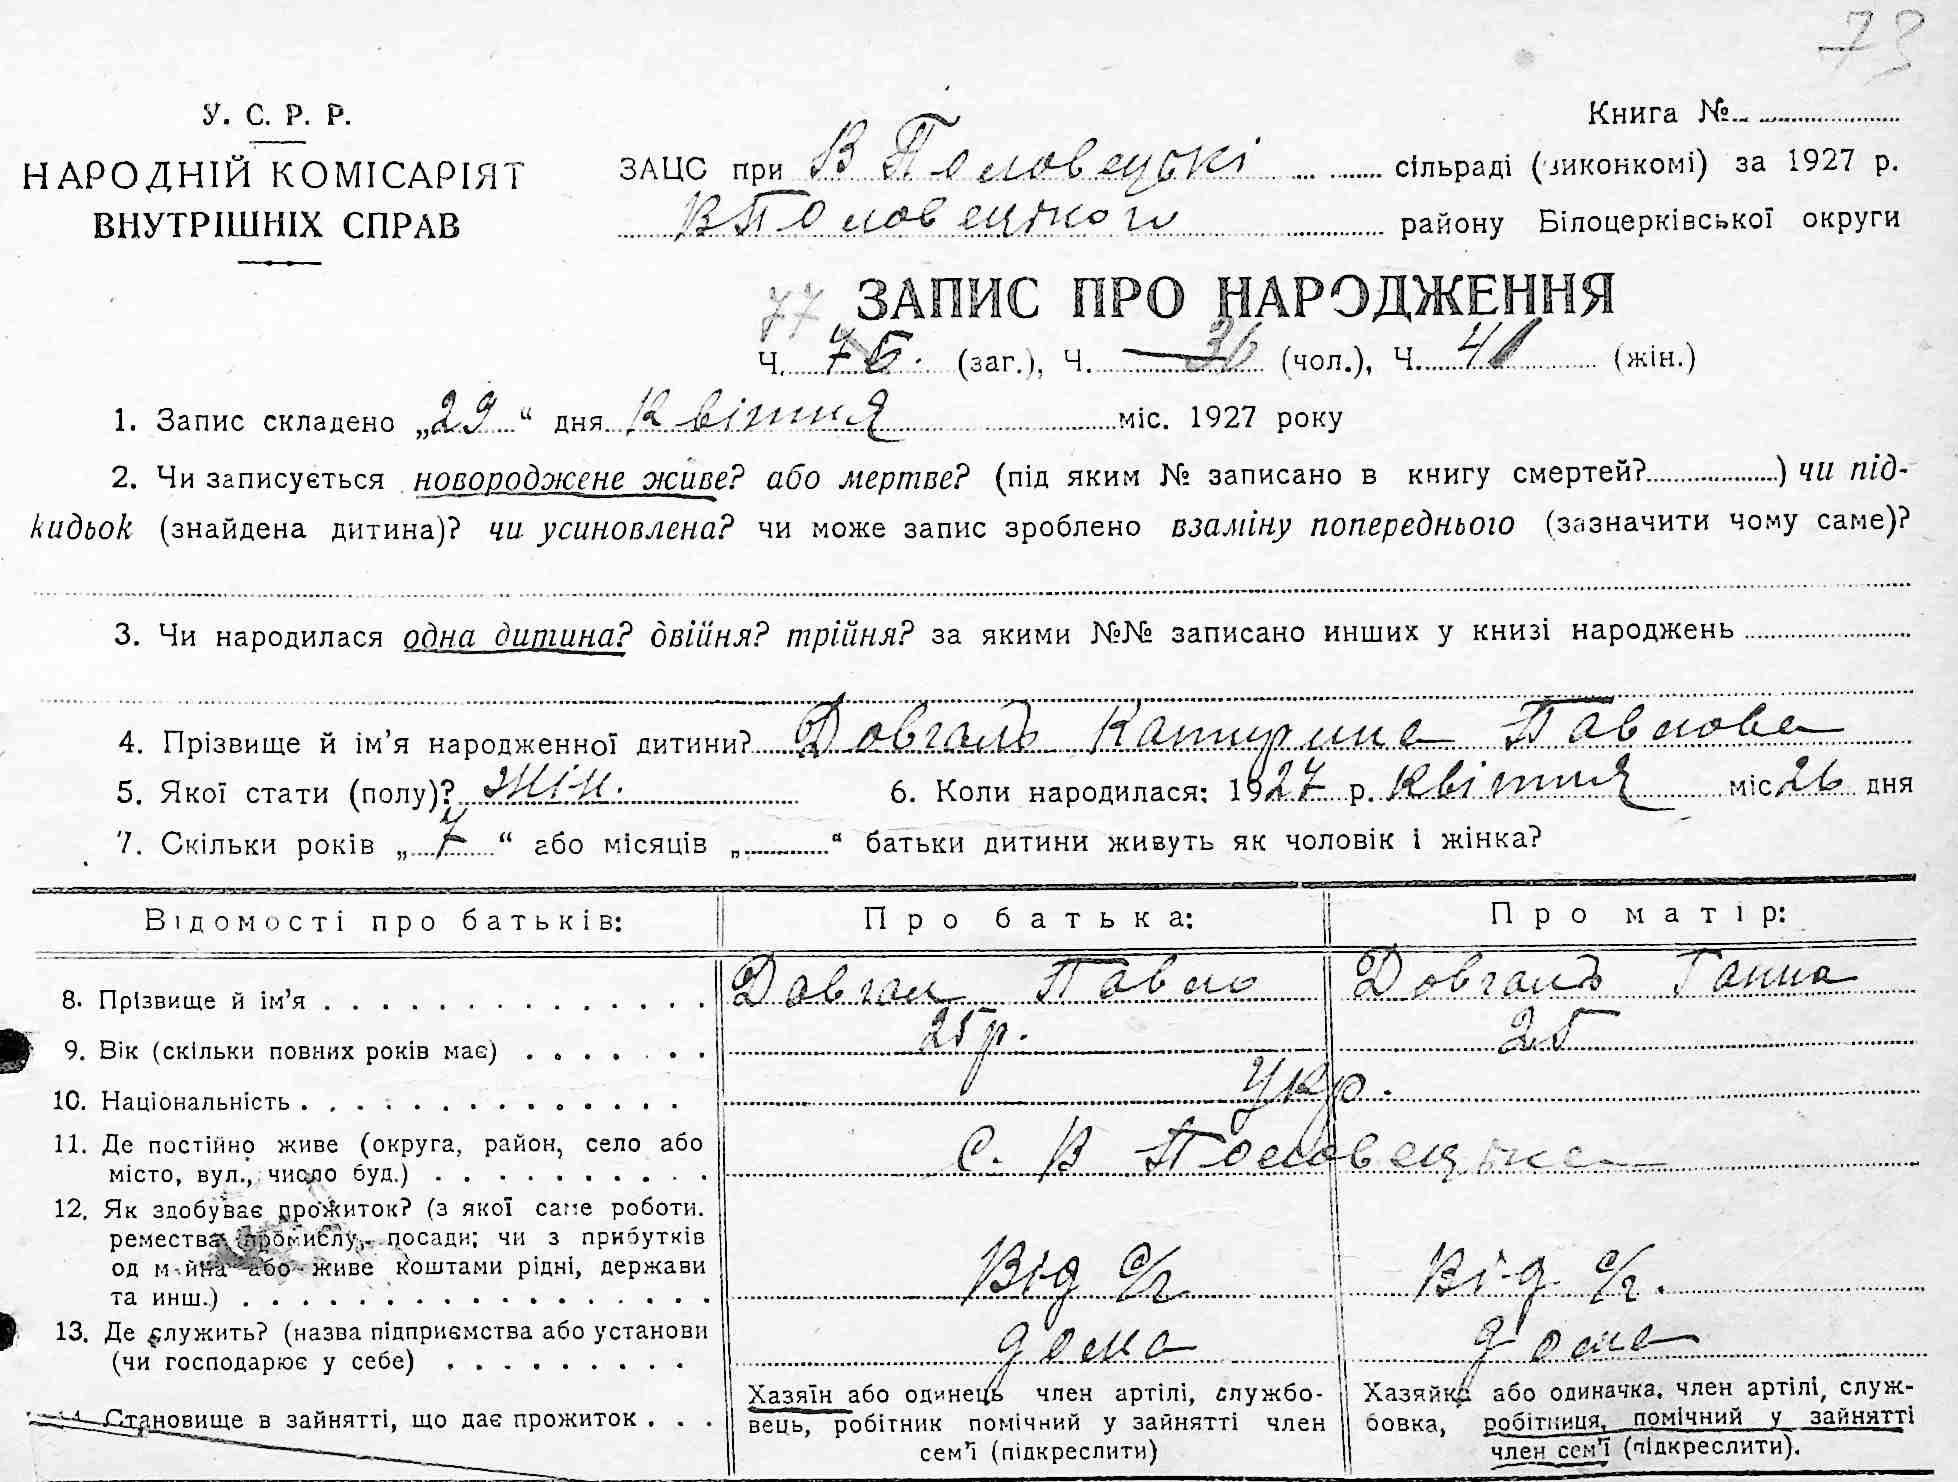 73
У. С. Р. Р.
НАРОДНІЙ КОМІСАРІЯТ
ВНУТРІШНІХ СПРАВ
Книга №
ЗАЦС при В Половецькі сільраді (виконкомі) за 1927 р.
В Половецького району Білоцерківської округи
77 ЗАПИС ПРО НАРОДЖЕННЯ
Ч. 75. (заг.), Ч. — 36 (чол.), Ч. 41 (жін.)
1. Запис складено „29“ дня Квітня міс. 1927 року
2. Чи записується новороджене живе? або мертве? (під яким № записано в книгу смертей?) чи під-
кидьок (знайдена дитина)? чи усиновлена? чи може запис зроблено взаміну попереднього (зазначити чому саме)?
3. Чи народилася одна дитина? двійня? трійня? за якими №№ записано инших у книзі народжень
4. Прізвище й ім’я народженної дитини? Довгаль Катирина Павлова
5. Якої стати (полу)? жін. 6. Коли народилася: 1927 р. Квітня міс 26 дня
7. Скільки років „7“ або місяців „“ батьки дитини живуть як чоловік і жінка?
Відомості про батьків: Про батька: Про матір:
8. Прізвище й ім’я Довгал Павло Довгаль Ганна
9. Вік (скільки повних років має) 25 р. 25
10. Національність Укр.
11. Де постійно живе (округа, район, село або
місто, вул., число буд.) с. В Половецьке
12. Як здобуває прожиток? (з якої саме роботи.
ремества, промислу, посади; чи з прибутків
од майна або живе коштами рідні, держави
та инш.) Від с/г Від с/г.
13. Де служить? (назва підприємства або установи
(чи господарює у себе) дома дома
14. Становище в зайнятті, що дає прожиток
Хазяїн або одинець член артілі, службо-
вець, робітник помічний у зайнятті член
сем’ї (підкреслити)
Хазяйка або одиначка, член артілі, служ-
бовка, робітниця, помічний у зайнятті
член сем’ї (підкреслити).